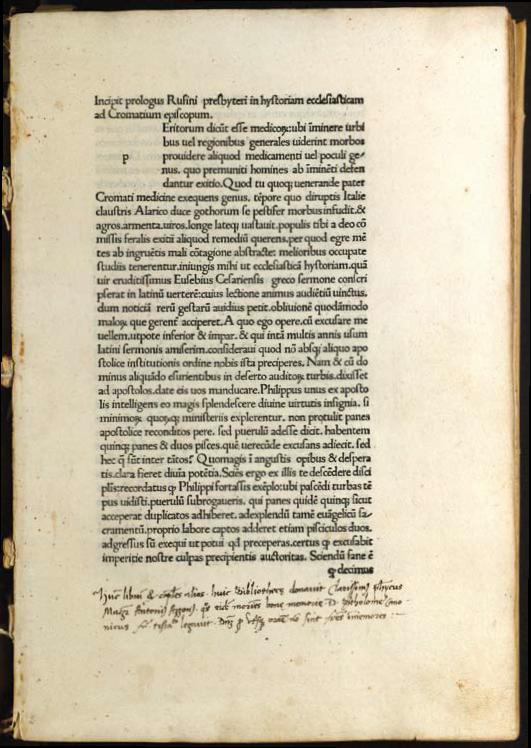 Incipit prologus Rufini presbyteri in hystoriam ecclesiasticam
ad Cromatium episcopum.
Eritorum dicūt esse medicoꝝ:ubi īminere urbi
bus uel regionibus generales uiderint morbos
p prouidere aliquod medicamenti uel poculi ge-
nus. quo premuniti homines ab imīnēti defen
dantur exitio. Quod tu quoqꝫ uenerande pater
Cromati medicine exequens genus. tēpore quo diruptis Italie
claustris Alarico duce gothorum se pestifer morbus infudit.&
agros.armenta.uiros.longe lateqꝫ uastauit.populis tibi a deo cō
missis feralis exitii aliquod remediū querens.per quod egre mē
tes ab ingruētis mali cōtagione abstracte: melioribus occupate
studiis tenerentur.iniungis mihi ut ecclesiasticā hystoriam.quā
uir eruditissimus Eusebius Cesariensis greco sermone conscri
pserat in latinū uerterē:cuius lectione animus audiētiū uinctus.
dum noticiā rerū gestarū auidius petit.obliuionē quodāmodo
maloꝝ que gerent᷑ acciperet. A quo ego opere.cū excusare me
uellem.utpote inferior & impar. & qui intā multis annis usum
latini sermonis amiserim.consideraui quod nō absqꝫ aliquo apo
stolice institutionis ordine nobis ista preciperes. Nam & cū do
minus aliquādo esurientibus in deserto auditoꝝ turbis.dixisset
ad apostolos.date eis uos manducare.Philippus unus ex aposto
lis intelligens eo magis splendescere diuine uirtutis insignia. si
minimoꝝ quoꝝqꝫ ministeriis explerentur. non protulit panes
apostolice reconditos pere. sed puerulū adesse dicit. habentem
quinqꝫ panes & duos pisces.quē uerecūde excusans adiecit. sed
hec ꝗ sūt inter tātos? Quomagis ī angustis opibus & despera
tis.clara fieret diuīa potētia. Sciēs ergo ex illis te descēdere disci
plīs:recordatus ꝙ Philippi fortassis exēplo:ubi pascēdi turbas tē
pus uidisti.puerulū subrogaueris. qui panes quidē quinqꝫ sicut
acceperat duplicatos adhiberet. adexplendū tamē euāgelicū sa-
cramentū.proprio labore captos adderet etiam pisciculos duos.
adgressus sū exequi ut potui qd preceperas.certus ꝙ excusabit
imperitie nostre culpas precipientis auctoritas. Sciendū sane ē
ꝙ decimus
Hūc librū & cōples alios huic Bibliothecę donauit Clarissimus physicus
Magr̄ Antonius